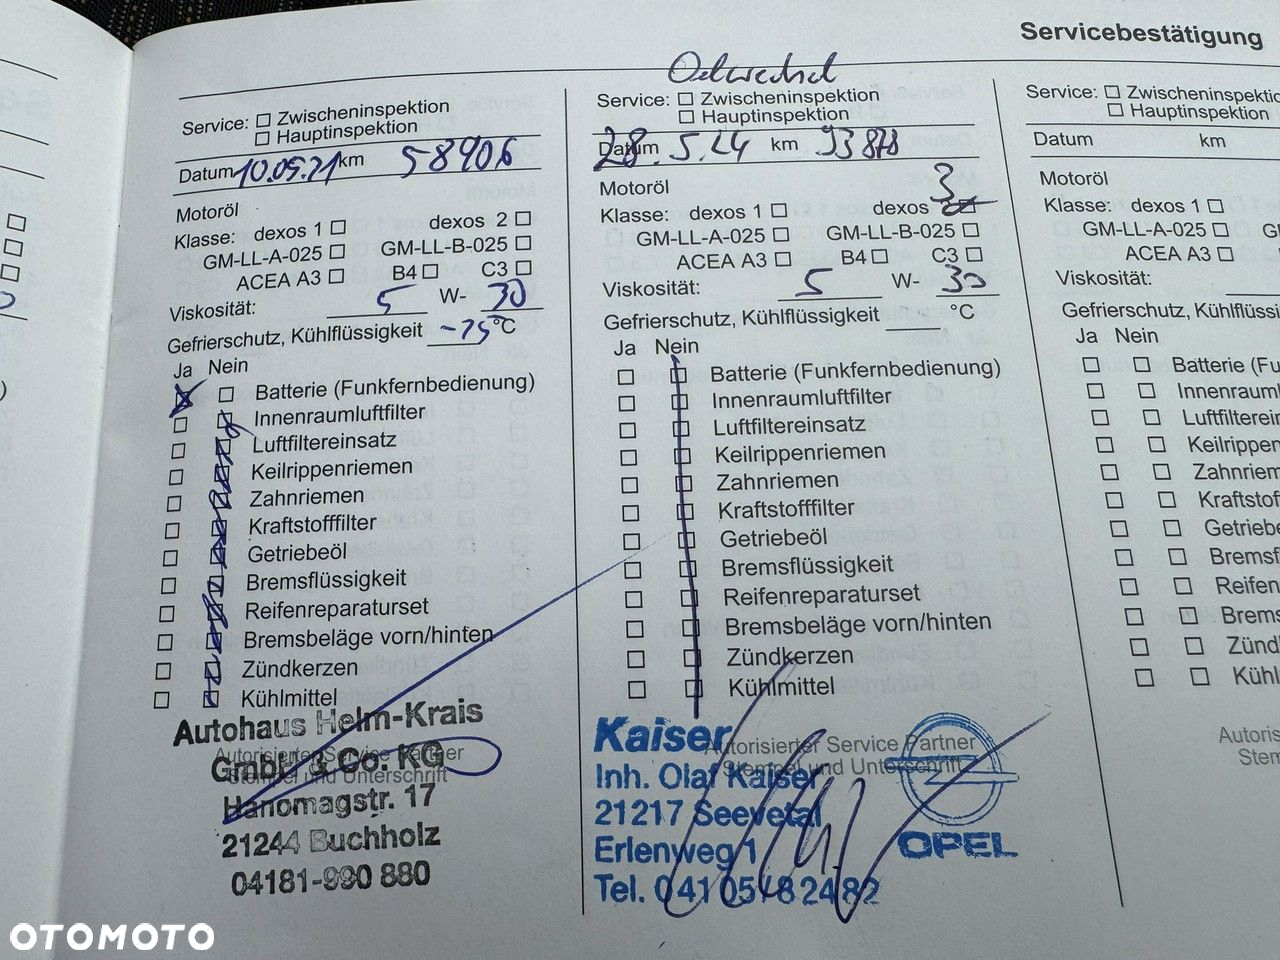 Servicebestätigung
Service: Zwischeninspektion
Hauptinspektion
Datum 10.05.21 km 58906
Motoröl
Klasse: dexos 1 dexos 2
GM-LL-A-025 GM-LL-B-025
ACEA A3 B4 C3
Viskosität: 5 W- 30
Gefrierschutz, Kühlflüssigkeit °C
Ja Nein
Batterie (Funkfernbedienung)
Innenraumluftfilter
Luftfiltereinsatz
Keilrippenriemen
Zahnriemen
Kraftstofffilter
Getriebeöl
Bremsflüssigkeit
Reifenreparaturset
Bremsbeläge vorn/hinten
Zündkerzen
Kühlmittel
Autorisierter Service Partner
Stempel und Unterschrift
Autohaus Helm-Krais
GmbH & Co. KG
Hanomagstr. 17
21244 Buchholz
04181-990 880
Oelwechsel
Service: Zwischeninspektion
Hauptinspektion
Datum 28.5.24 km 93878
Motoröl
Klasse: dexos 1 dexos 3
GM-LL-A-025 GM-LL-B-025
ACEA A3 B4 C3
Viskosität: 5 W- 30
Gefrierschutz, Kühlflüssigkeit °C
Ja Nein
Batterie (Funkfernbedienung)
Innenraumluftfilter
Luftfiltereinsatz
Keilrippenriemen
Zahnriemen
Kraftstofffilter
Getriebeöl
Bremsflüssigkeit
Reifenreparaturset
Bremsbeläge vorn/hinten
Zündkerzen
Kühlmittel
Autorisierter Service Partner
Stempel und Unterschrift
Kaiser
Inh. Olaf Kaiser
21217 Seevetal
Erlenweg 1
Tel. 04105/82482
OPEL
Service: Zwischeninspektio
Hauptinspektion
Datum km
Motoröl
Klasse: dexos 1
GM-LL-A-025 G
ACEA A3
Viskosität:
Gefrierschutz, Kühlflüssi
Ja Nein
Batterie (Fu
Innenraum
Luftfilter
Keilrippen
Zahnriem
Kraftstof
Getriebe
Bremsf
Reifen
Brems
Zünd
Kühl
Autoris
Stem
OTOMOTO